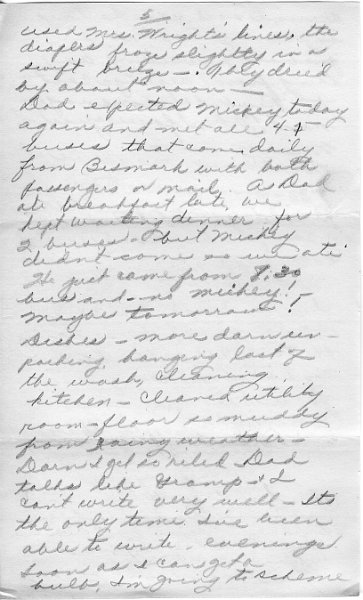 5
used Mrs. Wright's lines, the
diapers froze slightly in a
swift breeze - . dried
by about noon -
Dad expected Mickey today
again and met all 4-5
buses that come daily
from Bismark with both
passengers or mail. As Dad
ate breakfast late, we
kept waiting dinner for
2 buses - but Mickey
didn't come so we ate
He just came from 8:30
bus and - no Mickey!
Maybe tomorrow!
Dishes - more darn un-
packing, hanging last of
the wash, cleaning
kitchen - cleaned utility
room - floor so muddy
from rainy weather -
Darn I get so riled Dad
talks like Gramp & I
can't write very well - Its
the only time I've been
able to write - evenings
Soon as I can get a
bulb, I'm going to scheme